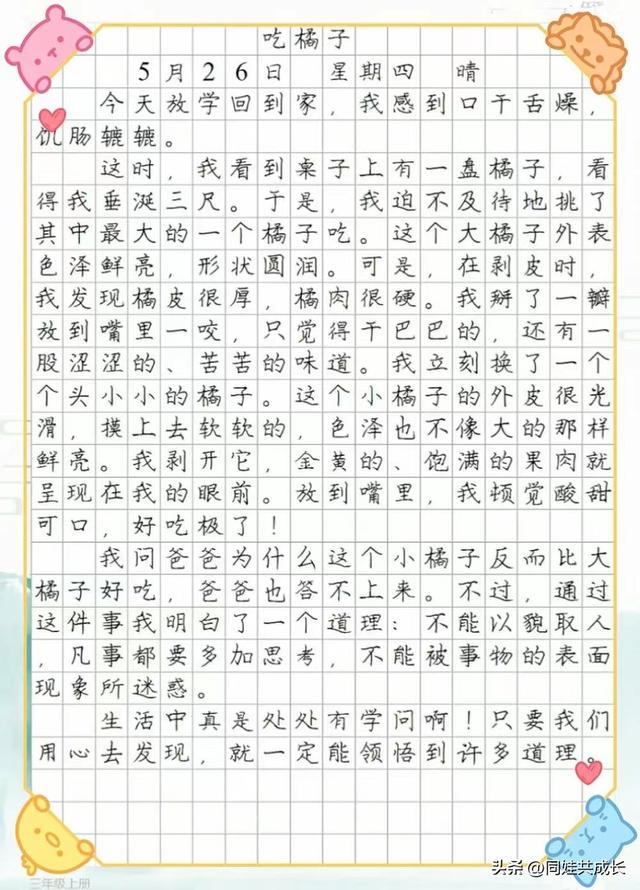 吃橘子
5月26日 星期四 晴
今天放学回到家，我感到口干舌燥，
饥肠辘辘。
这时，我看到桌子上有一盘橘子，看
得我垂涎三尺。于是，我迫不及待地挑了
其中最大的一个橘子吃。这个大橘子外表
色泽鲜亮，形状圆润。可是，在剥皮时，
我发现橘皮很厚，橘肉很硬。我掰了一瓣
放到嘴里一咬，只觉得干巴巴的，还有一
股涩涩的、苦苦的味道。我立刻换了一个
个头小小的橘子。这个小橘子的外皮很光
滑，摸上去软软的，色泽也不像大的那样
鲜亮。我剥开它，金黄的、饱满的果肉就
呈现在我的眼前。放到嘴里，我顿觉酸甜
可口，好吃极了！
我问爸爸为什么这个小橘子反而比大
橘子好吃，爸爸也答不上来。不过，通过
这件事我明白了一个道理：不能以貌取人
，凡事都要多加思考，不能被事物的表面
现象所迷惑。
生活中真是处处有学问啊！只要我们
用心去发现，就一定能领悟到许多道理。
三年级上册
头条 @同娃共成长